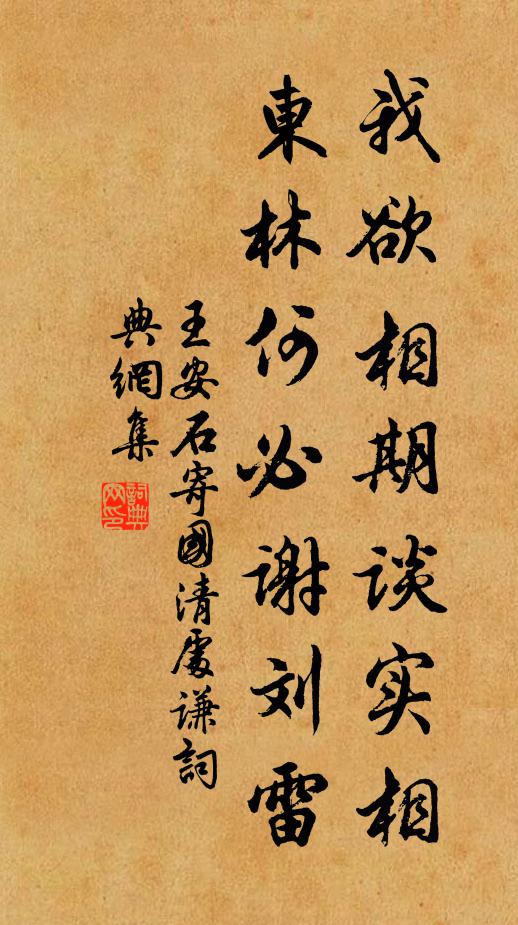 我欲相期谈实相
東林何必谢刘雷
王安石寄國清處謙詞
典網集
詞典
网印